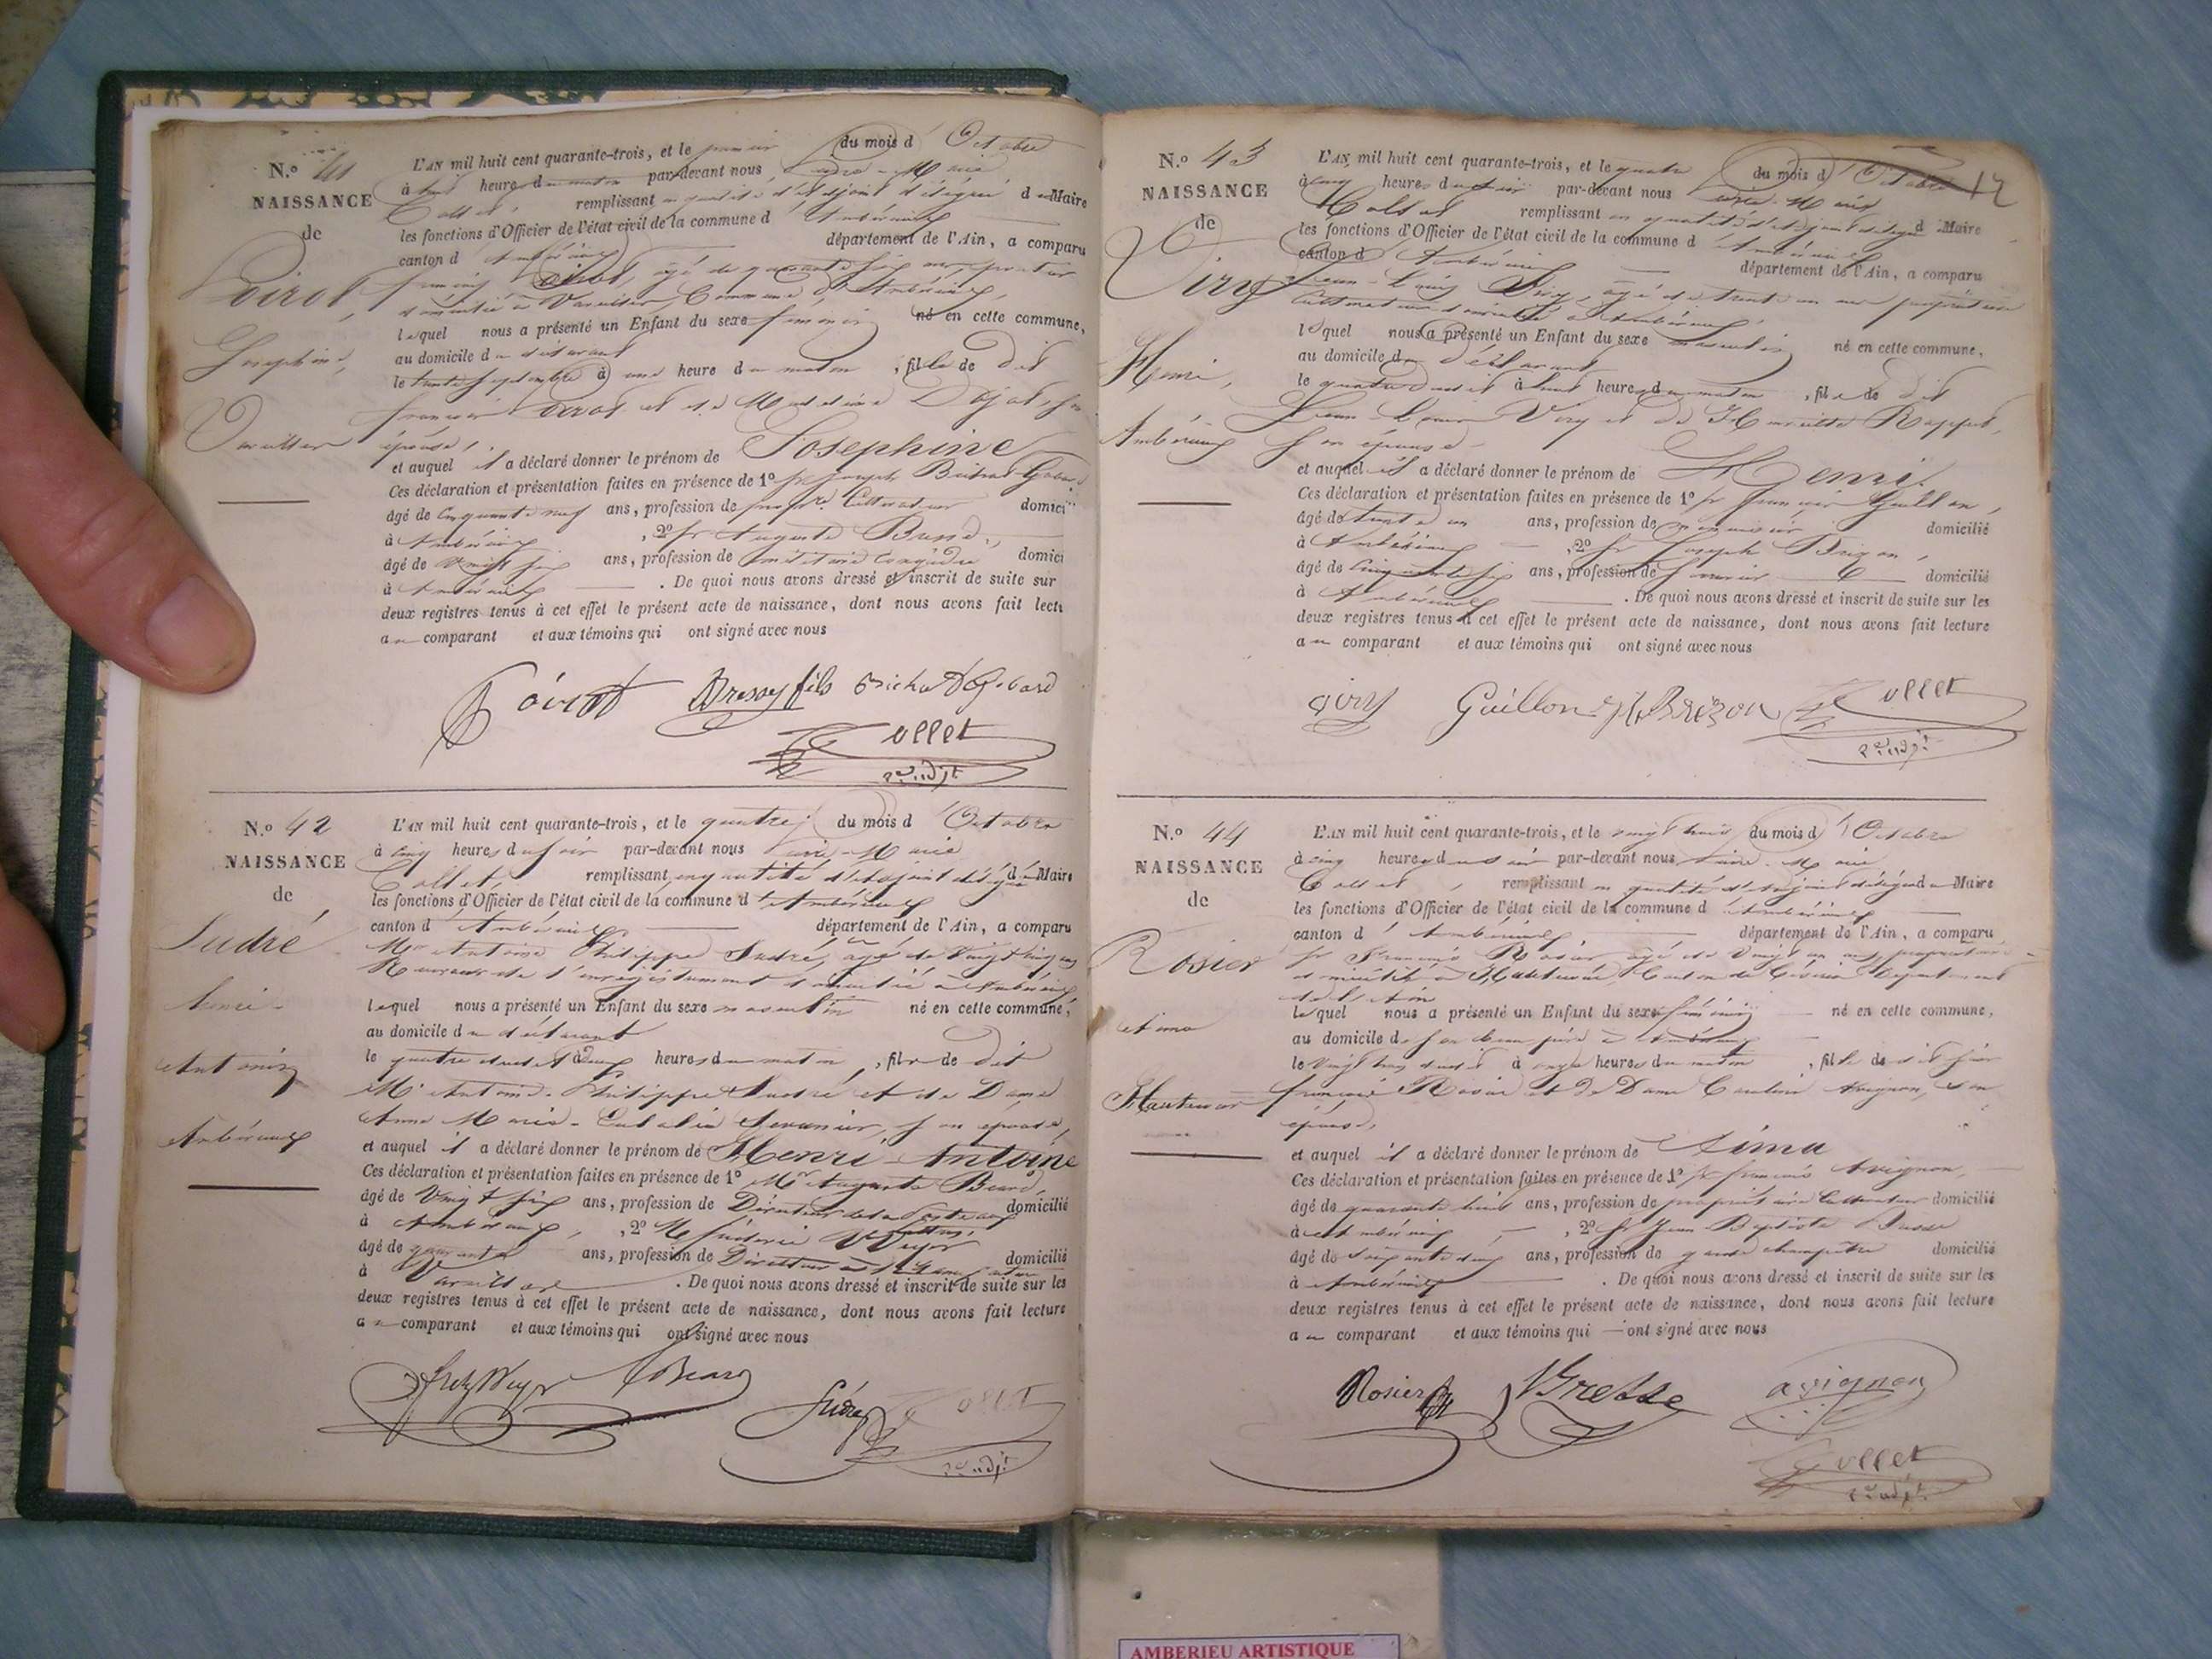 N.º 41
NAISSANCE
de
Poirot,
Josephine,
Vareilles
L'AN mil huit cent quarante-trois, et le premier du mois d'Octobre
à huit heures du matin par-devant nous Marie
Collet, remplissant en qualité d'adjoint délégué du Maire
les fonctions d'Officier de l'état civil de la commune d'Ambérieux
canton d'Ambérieux département de l'Ain, a comparu
françois Poirot, âgé de quarante six ans,
domicilié à Vareilles, Commune d'Ambérieux,
lequel nous a présenté un Enfant du sexe féminin né en cette commune,
au domicile du déclarant
le trente septembre à une heure du matin, fille de dit
françois Poirot et de son
épouse,
et auquel il a déclaré donner le prénom de Josephine
Ces déclaration et présentation faites en présence de 1º sr Joseph
âgé de Cinquante neuf ans, profession de propre. Cultivateur domici
à Ambérieux, 2º sr Auguste
âgé de Vingt six ans, profession de militaire congédié domici
à Ambérieux. De quoi nous avons dressé et inscrit de suite sur
deux registres tenus à cet effet le présent acte de naissance, dont nous avons fait lectu
au comparant et aux témoins qui ont signé avec nous
Poirot fils
Collet
2e adjt
N.º 42
NAISSANCE
de
Sudré
henri
Antoine
Ambérieux
L'AN mil huit cent quarante-trois, et le quatre du mois d'Octobre
à cinq heures du soir par-devant nous Marie
Collet, remplissant en qualité d'adjoint délégué du Maire
les fonctions d'Officier de l'état civil de la commune d'Ambérieux
canton d'Ambérieux département de l'Ain, a comparu
Mr Antoine Philippe Sudré, âgé de Vingt cinq ans
Receveur de l'enregistrement domicilié à Ambérieux
lequel nous a présenté un Enfant du sexe masculin né en cette commune,
au domicile du déclarant
le quatre dudit à deux heures du matin, fils de dit
Mr Antoine-Philippe Sudré et de Dame
Anne Marie-Eulalie son épouse,
et auquel il a déclaré donner le prénom de Henri-Antoine
Ces déclaration et présentation faites en présence de 1º Mr Auguste
âgé de Vingt six ans, profession de Directeur de la Poste aux lettres domicilié
à Ambérieux, 2º Mr fréderic
âgé de quarante ans, profession de Directeur domicilié
à Vareilles. De quoi nous avons dressé et inscrit de suite sur les
deux registres tenus à cet effet le présent acte de naissance, dont nous avons fait lecture
au comparant et aux témoins qui ont signé avec nous
Sudré Collet
2e adjt
N.º 43
NAISSANCE
de
Viry
Henri,
Ambérieux
12
L'AN mil huit cent quarante-trois, et le quatre du mois d'Octobre
à cinq heures du soir par-devant nous Marie
Collet remplissant en qualité d'adjoint délégué du Maire
les fonctions d'Officier de l'état civil de la commune d'Ambérieux
canton d'Ambérieux département de l'Ain, a comparu
Jean-Louis Viry, âgé de trente un ans propriétaire
Cultivateur domicilié à Ambérieux,
lequel nous a présenté un Enfant du sexe masculin né en cette commune,
au domicile du déclarant
le quatre dudit à huit heures du matin, fils de dit
Jean-Louis Viry et de Henriette
son épouse
et auquel il a déclaré donner le prénom de Henri.
Ces déclaration et présentation faites en présence de 1º sr françois Guillon,
âgé de trente un ans, profession de menuisier domicilié
à Ambérieux, 2º sr Joseph Brizon,
âgé de Cinquante six ans, profession de domicilié
à Ambérieux. De quoi nous avons dressé et inscrit de suite sur les
deux registres tenus à cet effet le présent acte de naissance, dont nous avons fait lecture
au comparant et aux témoins qui ont signé avec nous
viry Guillon Brizon Collet
2e adjt
N.º 44
NAISSANCE
de
Rosier
Séma
Hauteville
L'AN mil huit cent quarante-trois, et le vingt trois du mois d'Octobre
à cinq heures du soir par-devant nous Marie
Collet, remplissant en qualité d'adjoint délégué du Maire
les fonctions d'Officier de l'état civil de la commune d'Ambérieux
canton d'Ambérieux département de l'Ain, a comparu
sr François Rosier âgé de Vingt un ans, propriétaire
domicilié à Département
de l'Ain
lequel nous a présenté un Enfant du sexe féminin né en cette commune,
au domicile de son beau père à Ambérieux
le Vingt trois dudit à onze heures du matin, fille de dit sieur
françois Rosier et de Dame Avignon, son
épouse,
et auquel il a déclaré donner le prénom de
Ces déclaration et présentation faites en présence de 1º sr françois Avignon,
âgé de quarante huit ans, profession de propriétaire Cultivateur domicilié
à Ambérieux, 2º sr Jean Baptiste
âgé de soixante cinq ans, profession de garde champêtre domicilié
à Ambérieux. De quoi nous avons dressé et inscrit de suite sur les
deux registres tenus à cet effet le présent acte de naissance, dont nous avons fait lecture
au comparant et aux témoins qui ont signé avec nous
Rosier avignon
Collet
2e adjt
AMBERIEU ARTISTIQUE